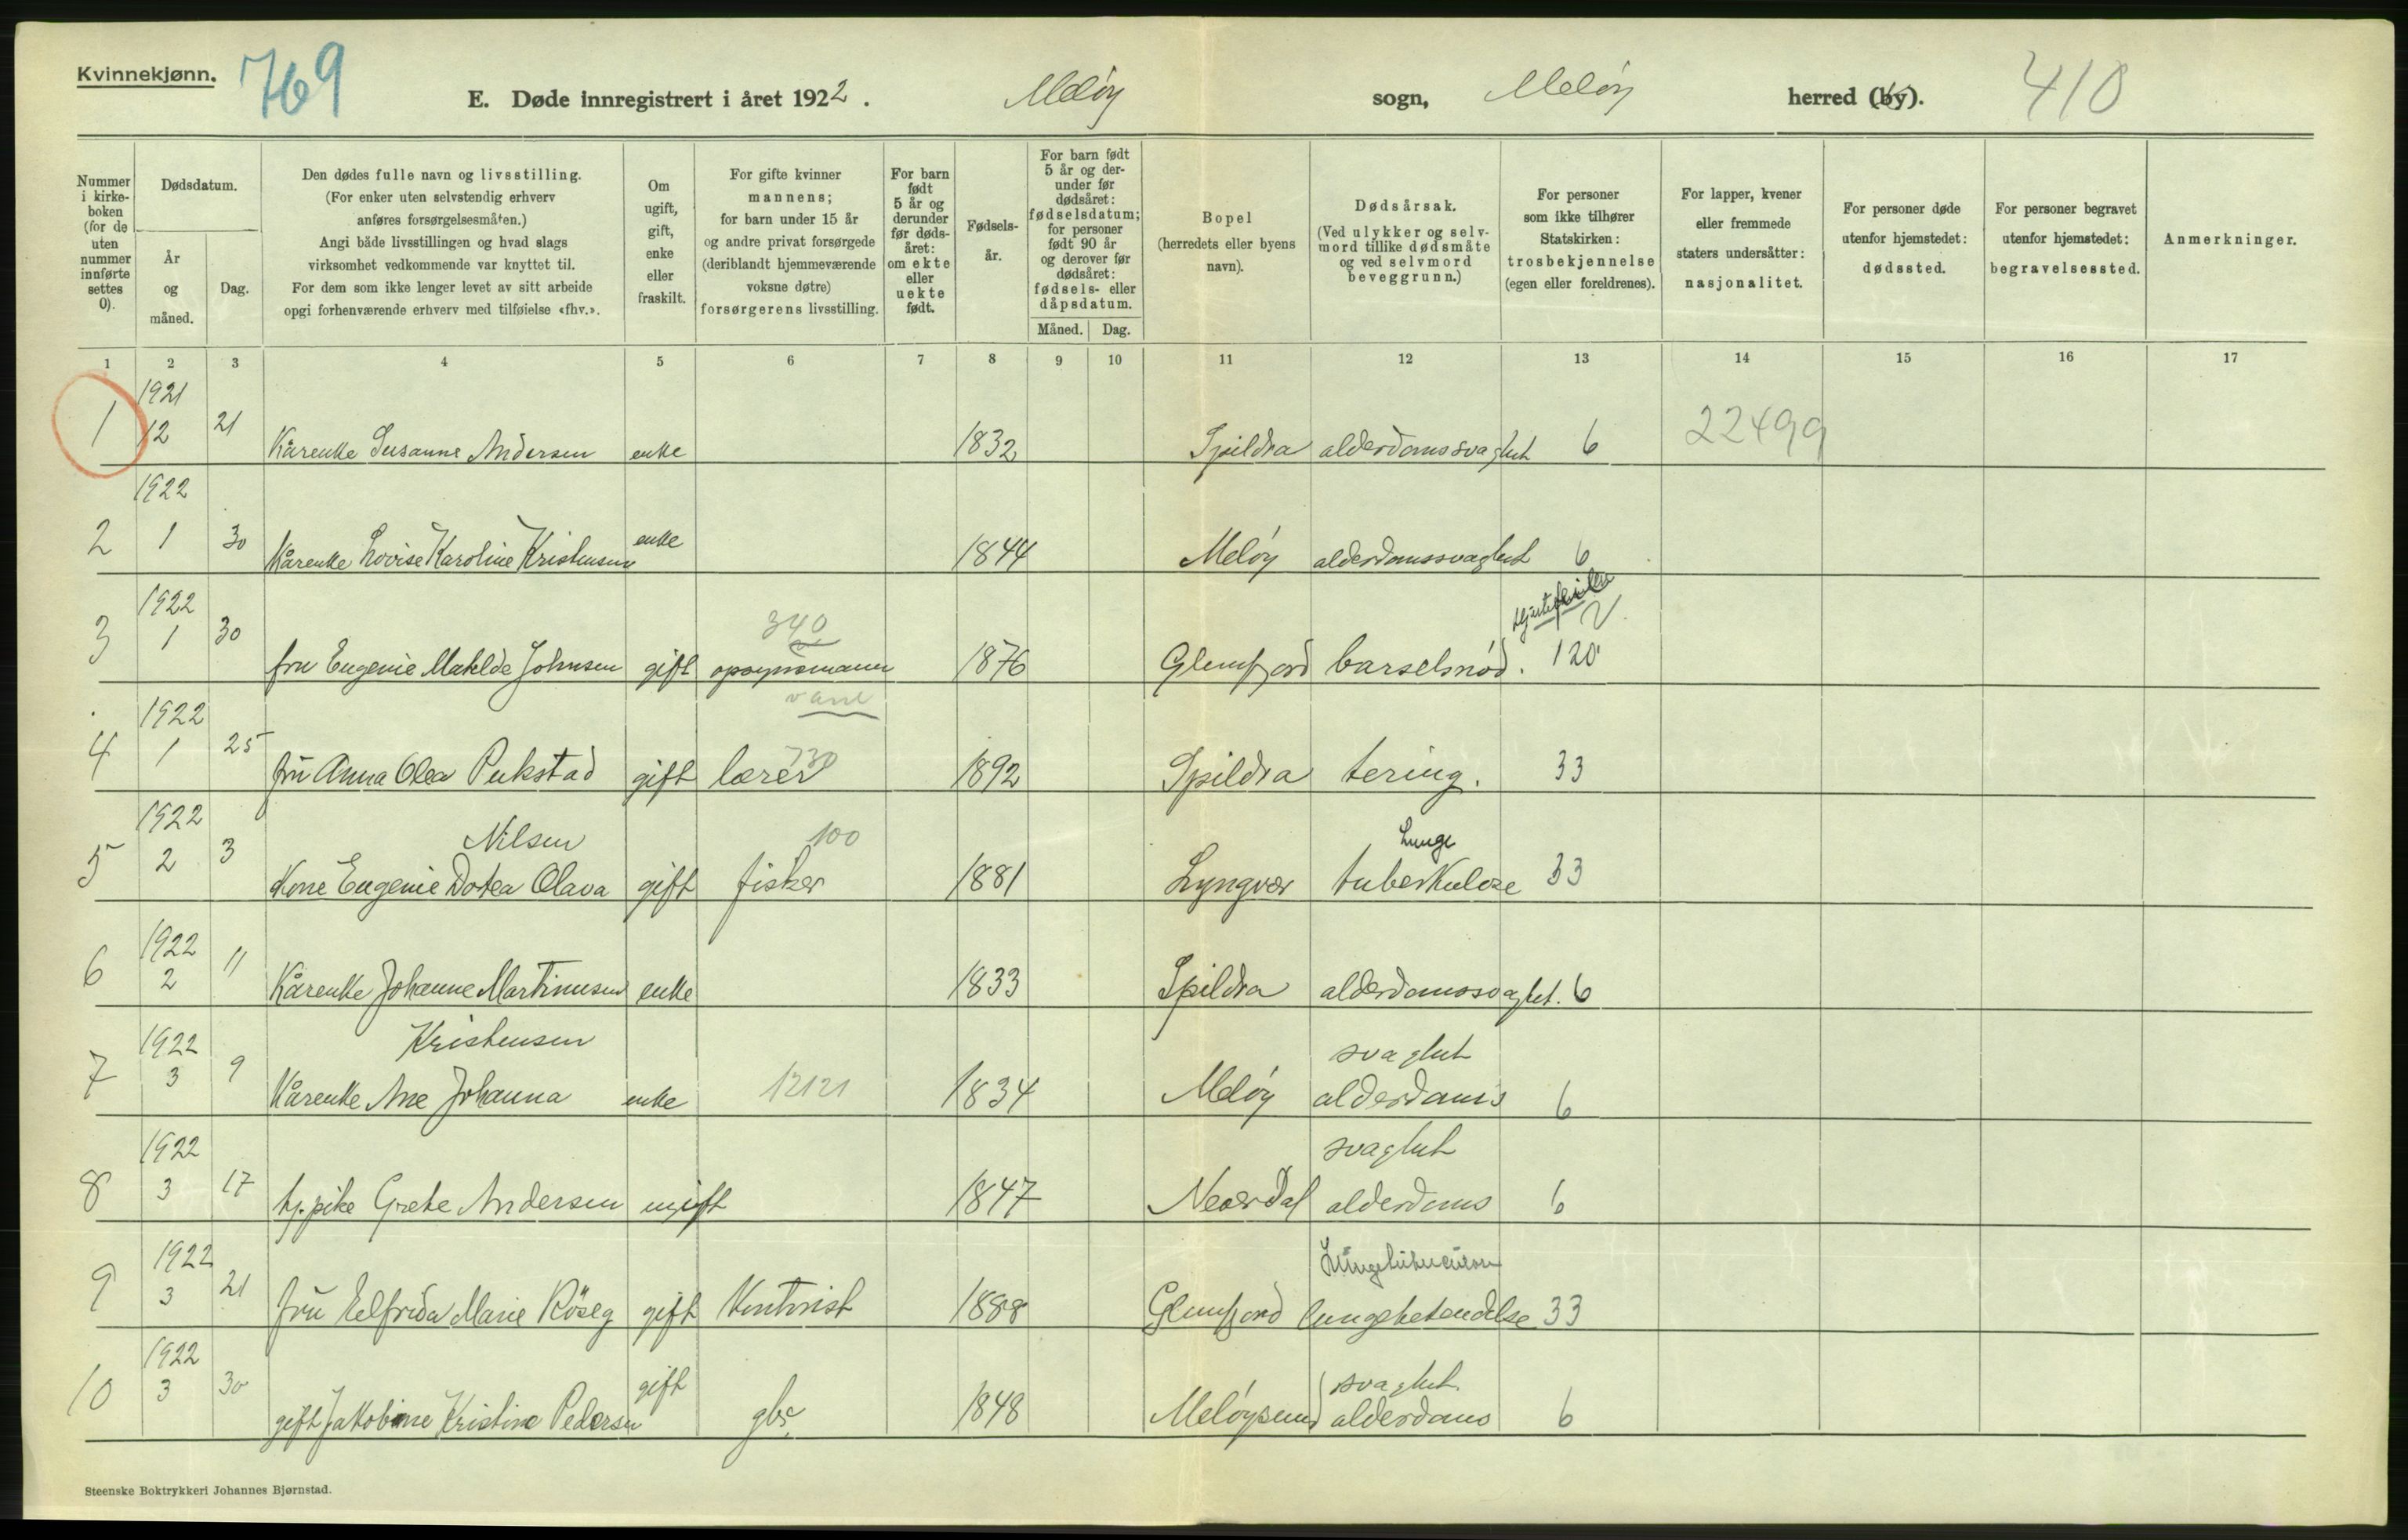 Kvinnekjønn.
769
E. Døde innregistrert i året 1922.
Meløy
sogn,
Meløy
herred (by).
410
Nummer i kirke-boken (for de uten nummer innførte settes 0).
Dødsdatum.
År og måned.
Dag.
Den dødes fulle navn og livsstilling.
(For enker uten selvstendig erhverv
anføres forsørgelsesmåten.)
Angi både livsstillingen og hvad slags
virksomhet vedkommende var knyttet til.
For dem som ikke lenger levet av sitt arbeide
opgi forhenværende erhverv med tilføielse «fhv.».
Om ugift, gift, enke eller fraskilt.
For gifte kvinner
mannens;
for barn under 15 år
og andre privat forsørgede
(deriblandt hjemmeværende
voksne døtre)
forsørgerens livsstilling.
For barn født 5 år og derunder før døds-året: om ekte eller uekte født.
Fødsels-år.
For barn født 5 år og der-under før dødsåret: fødselsdatum; for personer født 90 år og derover før dødsåret: fødsels- eller dåpsdatum.
Måned.
Dag.
Bopel
(herredets eller byens
navn).
Dødsårsak.
(Ved ulykker og selv-
mord tillike dødsmåte
og ved selvmord
beveggrunn.)
For personer
som ikke tilhører
Statskirken:
trosbekjennelse
(egen eller foreldrenes).
For lapper, kvener
eller fremmede
staters undersåtter:
nasjonalitet.
For personer døde
utenfor hjemstedet:
dødssted.
For personer begravet
utenfor hjemstedet:
begravelsessted.
Anmerkninger.
1 2 3 4 5 6 7 8 9 10 11 12 13 14 15 16 17
1921
1 12 21 Kårenke Susanne Andersen enke 1832 Spildra alderdomssvaghet 6 22499
1922
2 1 30 Kårenke Lovise Karoline Kristensen enke 1844 Meløy alderdomssvaghet 6
1922 340 Hjertefeil
3 1 30 fru Eugenie Matilde Johnsen gift opsynsmann 1876 Glomfjord barselsnød. 120
vann
1922
4 1 25 fru Anna Olea Pukstad gift lærer 730 1892 Spildra tering. 33
1922 Nilsen 100 Lunge
5 2 3 Kone Eugenie Dotea Olava gift fisker 1881 Lyngvær tuberkulose 33
1922
6 2 11 Kårenke Johanne Martinusen enke 1833 Spildra alderdomssvaghet. 6
1922 Kristensen svaghet
7 3 9 Kårenke Ane Johanna enke 12121 1834 Meløy alderdoms 6
1922 svaghet
8 3 17 tj. pike Grete Andersen ugift 1847 Neverdal alderdoms 6
1922
9 3 21 fru Elfrida Marie Røseg gift Kontorist 1888 Glomfjord lungebetendelse 33
1922 svaghet
10 3 30 gift Jakobine Kristine Pedersen gift gbr. 1848 Meløysund alderdoms 6
Steenske Boktrykkeri Johannes Bjørnstad.